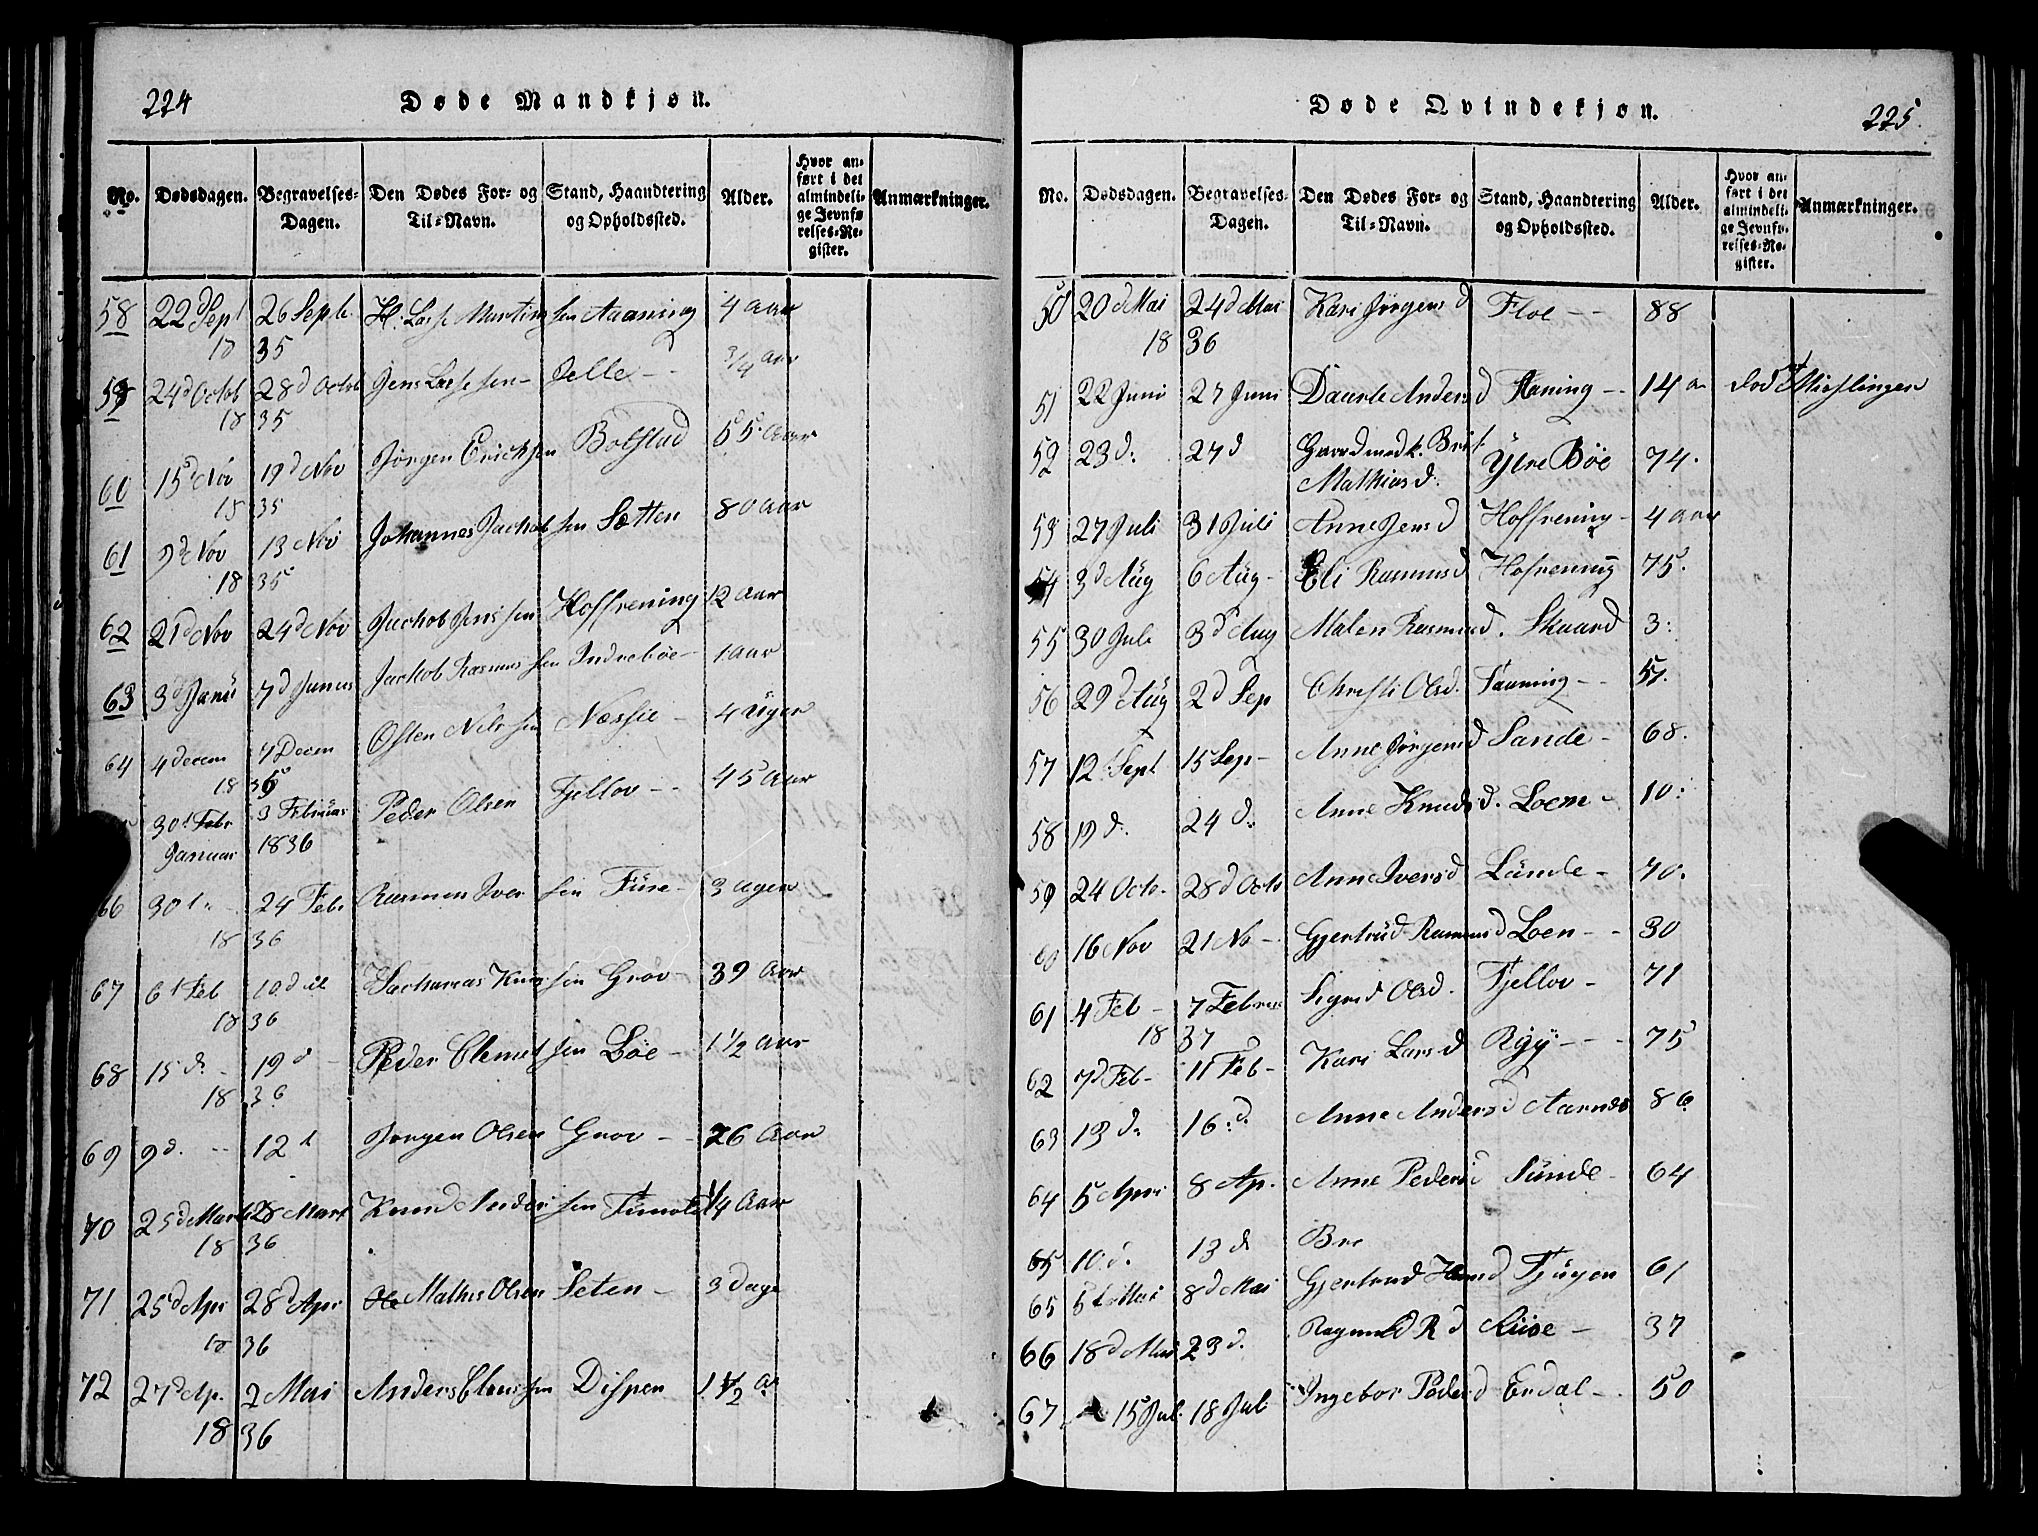 224
Døde Mandkjøn.
No. Dødsdagen. Begravelses-Dagen. Den Dødes For- og Til-Navn. Stand, Haandtering og Opholdssted. Alder. Hvor anført i det almindelige Jevnførelses-Register. Anmærkninger.
58 22d Sept 26 Septb. Lasse Martinsen Aaning 4 Aar
18 35
59 24d Octob 28d Octob Jens Lassesen Jelle 3/4 Aar
18 35
60 15d Nov 19d Nov Jørgen Ericksen Bolstad 55 Aar
18 35
61 9d Nov 13 Nov Johannes Jachobsen Sætten 80 Aar
18 35
62 21d Nov 24d Nov Jachob Jenssen Hoffrening 12 Aar
63 3d Janu 7d Januar Jachob Rasmussen Indrebøe 1 Aar
64 4 Decem 7 Decem Osten Nilssen Næssie 4 Uger
18 35
30t Febr 3 Februar Peder Olsen Fjellov 45 Aar
Januar 1836
66 30t 24 Febr Rasmus Iversen Fure 3 Uger
18 36
67 6t Feb 10 d Zacharias Knudsen Grov 39 Aar
18 36
68 15 d. 19 d Peder Clemetsen Bøe 1 1/2 Aar
18 36
69 9 d. 12 d Jørgen Olsen Grov 26 Aar
70 25d Marti 28 Mart Knud Andersen 1/4 Aar
18 36
71 25d Apr 28d Apr Ole Mathis Olsen Seten 3 Dage
18 36
72 27d Ap. 2 Mai Anders Clausen Dispen 1 1/2 A
18 36
Døde Qvindekjøn.
225.
No. Dødsdagen. Begravelses-Dagen. Den Dødes For- og Til-Navn. Stand, Haandtering og Opholdssted. Alder. Hvor anført i det almindelige Jevnførelses-Register. Anmærkninger.
50 20d Mai 24d Mai Kari Jørgensd Floe 88
18 36
51 22 Juni 27 Juni Daarte Andersd Haning 14 a død
52 23 d. 27 d Brit Ytre Bøe 74.
Mathiasd.
53 27 Juli 31 Juli Anne Jensd Hoffrening 4 Aar
54 3d Aug 6 Aug Eli Rasmusd Hofrening 75.
55 30 Juli 3d Aug Malen Rasmusd. Skaard 3.
56 29d Aug 2d Sep Christi Olsd. Tauning 57.
57 12 Sept 15 Sep Anne Jørgensd Sande 68.
58 19 d. 24 d. Anne Knudsd. Loen 10.
59 24 Octo. 28d Octo Anne Iversd Lunde 70.
60 16 Nov 21 No Gjertrud Rasmusd Loen 30
61 4 Feb 7 Februar Signed Olsd. Fjellov 71
18 37
62 7d Feb 11 Feb Kari Larsd Ryg 75
63 13 d. 16. d. Anne Andersd Aarnes 86
64 5 Apri 8 Ap. Anne Pedersd Sunde 64
65 10. d. 13 d Bre
65 5t Mai 8d Mai Gjertrud Hansd Tjugen 61
66 18d Mai 23 d. Ragnild R d Riise 37
67 15 Jul. 18 Jul Ingebor Pedersd Erdal 50